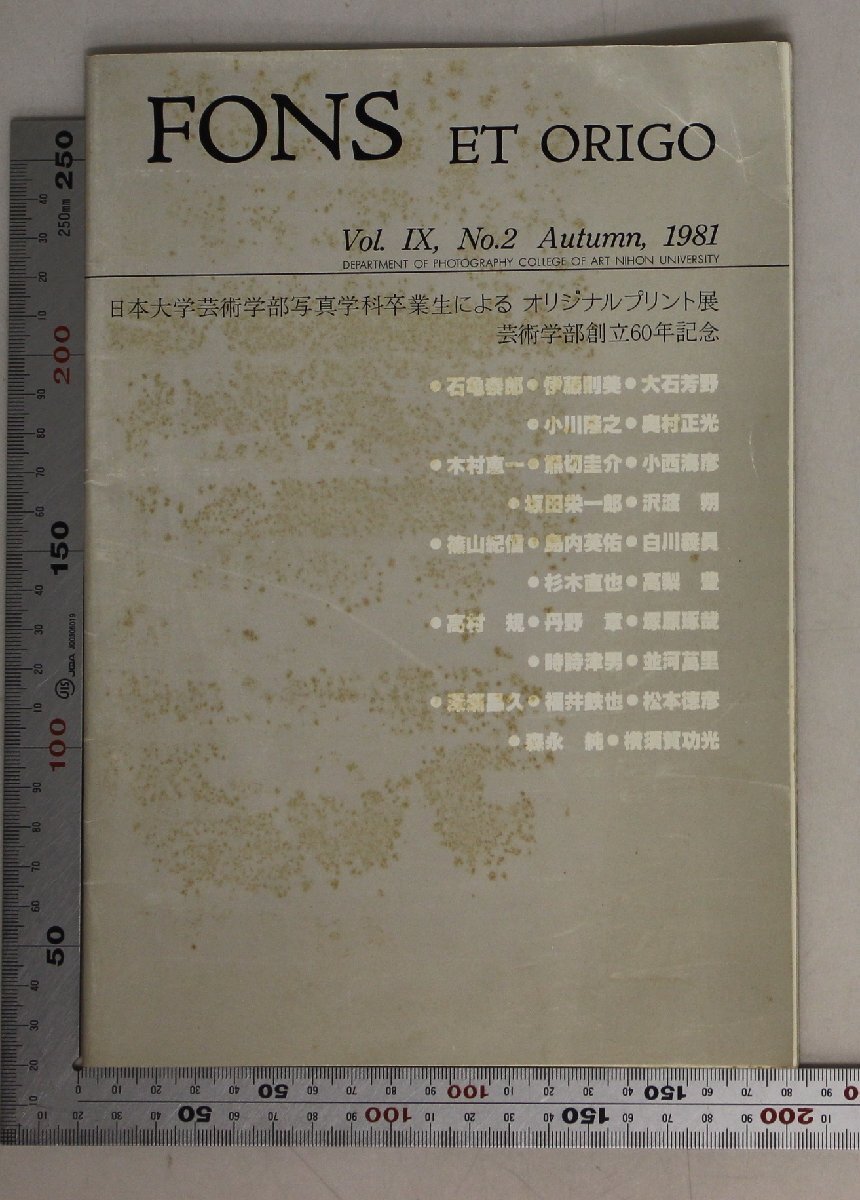 FONS ET ORIGO
Vol. IX, No.2 Autumn, 1981
DEPARTMENT OF PHOTOGRAPHY COLLEGE OF ART NIHON UNIVERSITY
日本大学芸術学部写真学科卒業生による オリジナルプリント展
芸術学部創立60年記念
●石亀泰郎●伊藤則美●大石芳野
●小川隆之●奥村正光
●木村恵一●熊切圭介●小西海彦
●坂田栄一郎●沢渡 朔
●篠山紀信●島内英佑●白川義員
●杉木直也●高梨 豊
●高村 規●丹野 章●塚原琢哉
●時時津男●並河萬里
●深瀬昌久●福井鉄也●松本徳彦
●森永 純●横須賀功光
250
250mm
200
150
100
50
JIS
50 100 150
50 100 150 200